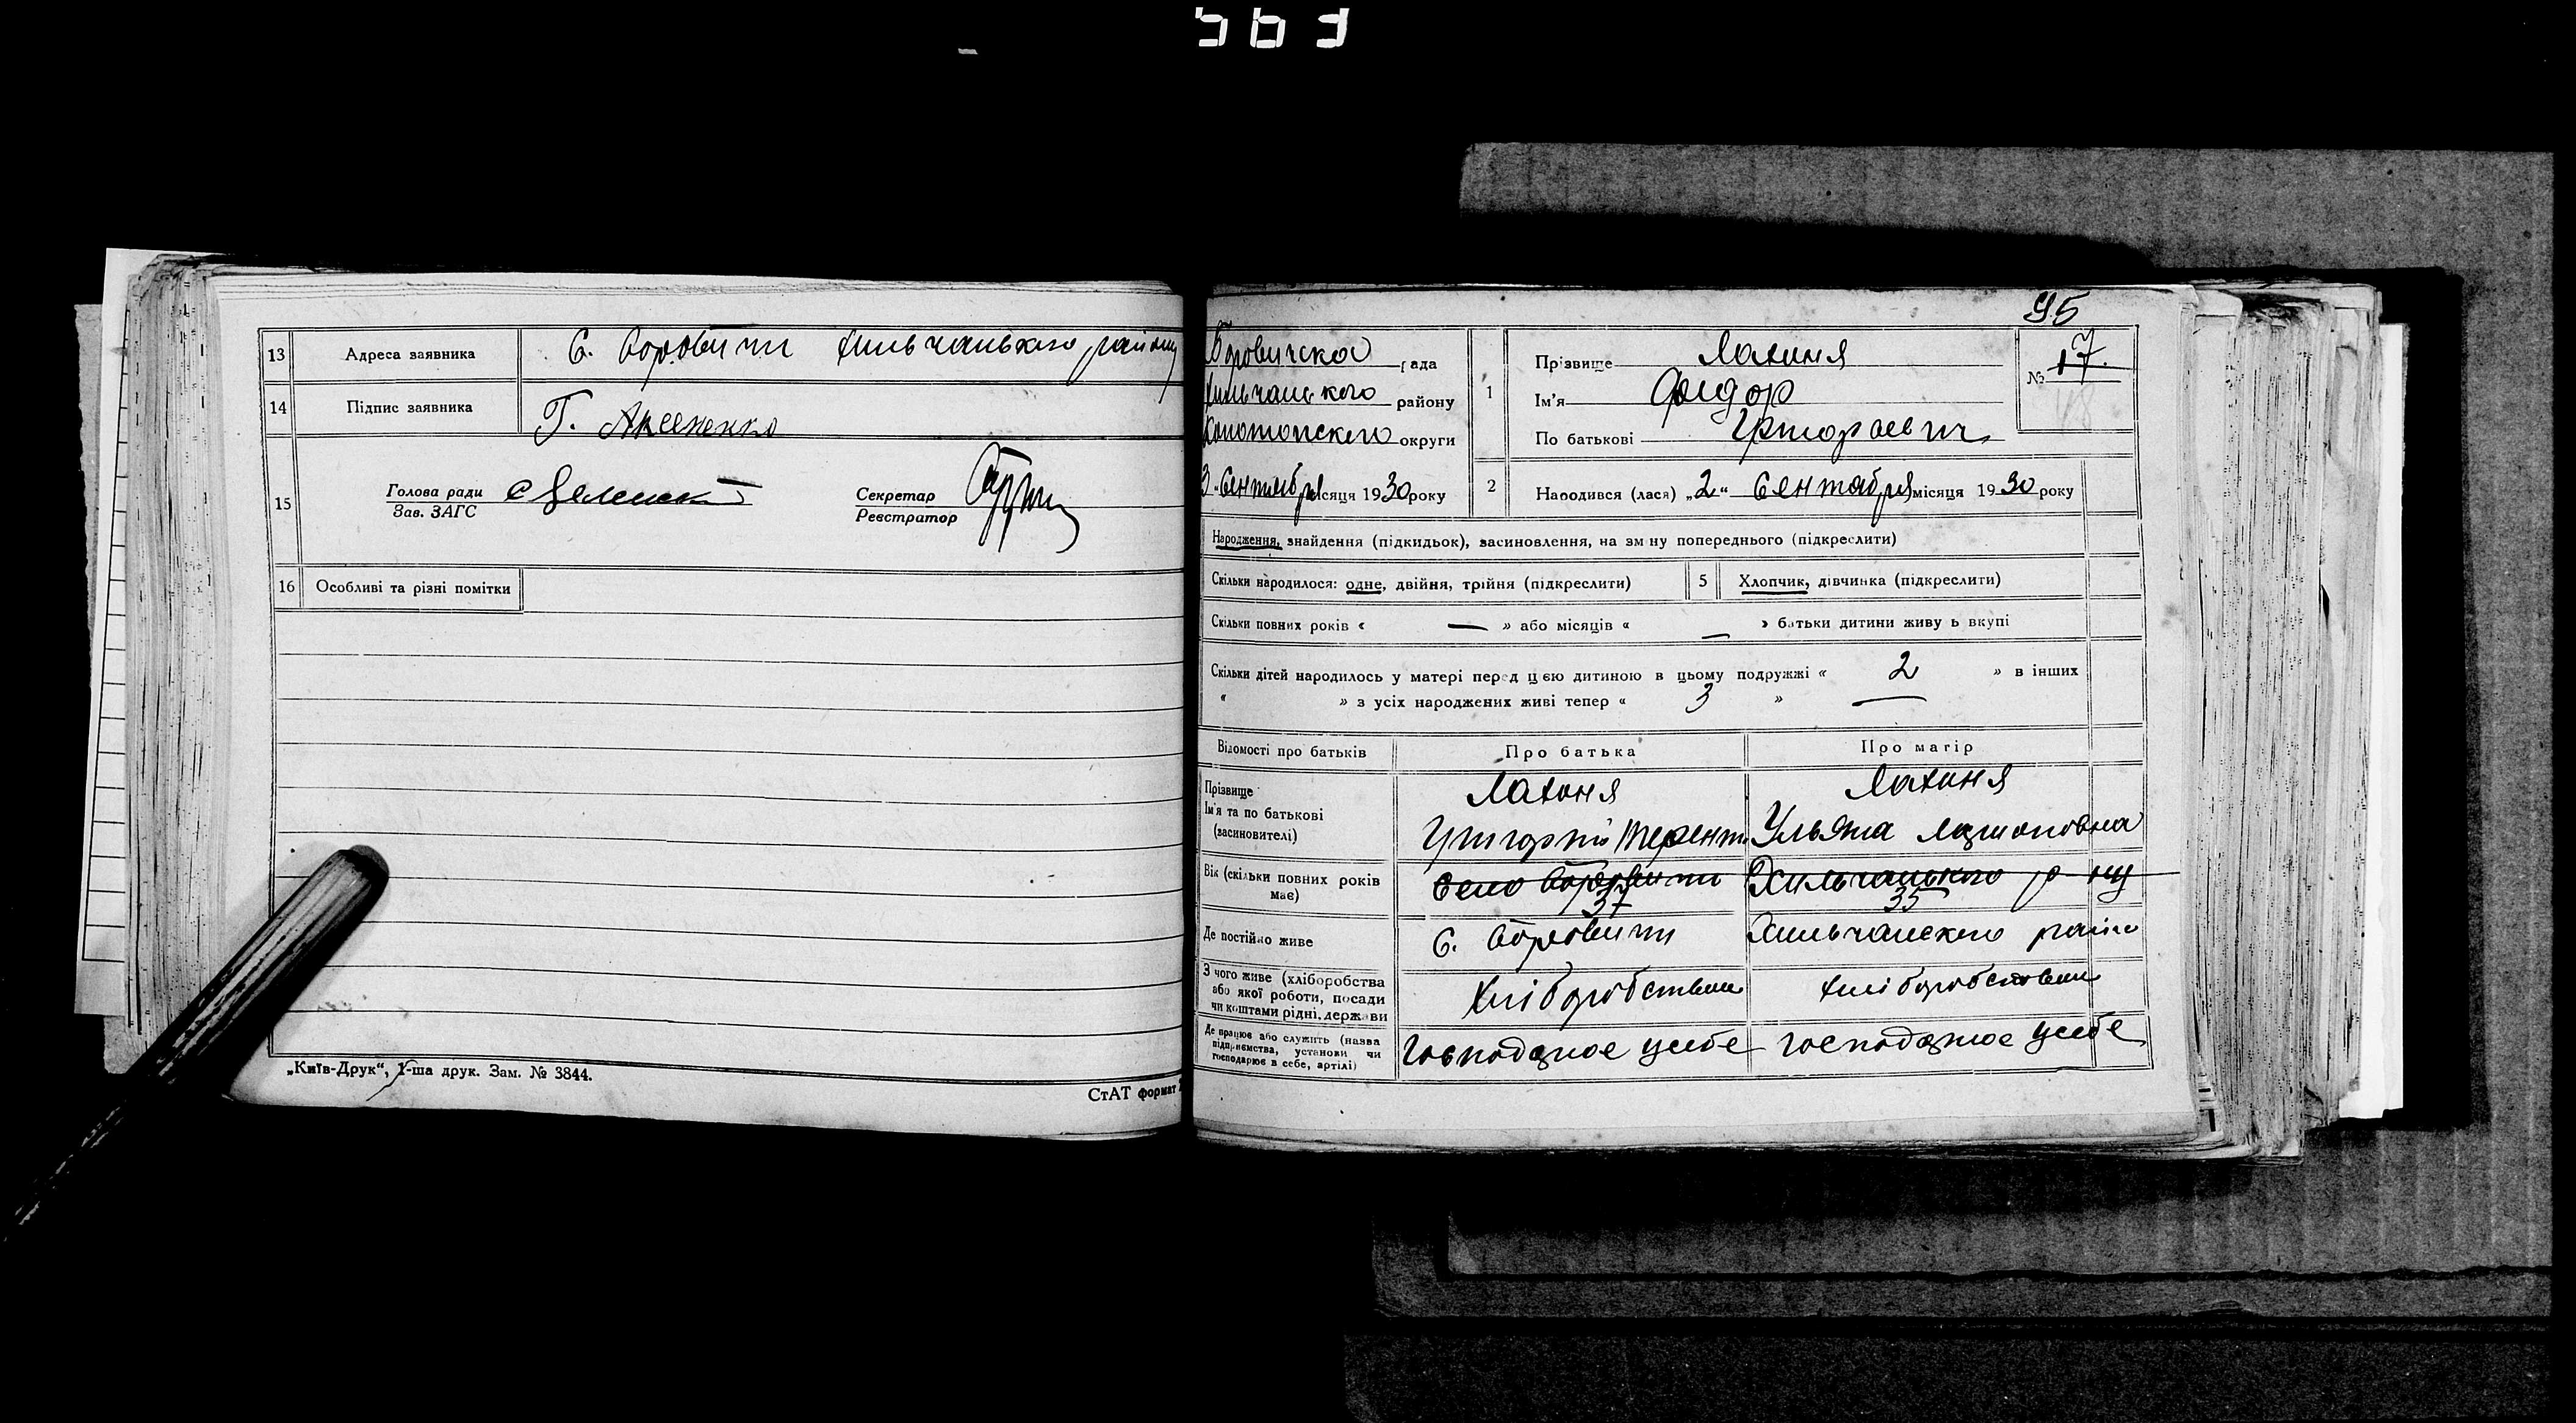 563
13 Адреса заявника С. Боровичи Хильчанського району
14 Підпис заявника Г. Аксененко
15 Голова ради
Зав. ЗАГС
Секретар
Реєстратор
16 Особливі та різні помітки
„Київ-Друк“, 1-ша друк. Зам. № 3844.
СтАТ формат
95
Боровичска рада
Хильчанського району
Конотопского округи
3 “ Сентября місяця 1930 року
1 Прізвище Лахоня
Ім'я Фидор
По батькові Григораевич
№ 17.
2 Народився (лася) „2“ Сентября місяця 1930 року
Народження, знайдення (підкидьок), засиновлення, на зміну попереднього (підкреслити)
Скільки народилося: одне, двійня, трійня (підкреслити) 5 Хлопчик, дівчинка (підкреслити)
Скільки повних років « — » або місяців « — » батьки дитини живуть вкупі
Скільки дітей народилось у матері перед цією дитиною в цьому подружжі « 2 » в інших
« » з усіх народжених живі тепер « 3 » —
Відомості про батьків Про батька Про матір
Прізвище Лахоня Лахоня
Ім'я та по батькові Григорий Терент. Ульяна
(засиновителі)
Вік (скільки повних років має) Село Боровичи Хильчанського р-ну
37 35
Де постійно живе С. Боровичи Хильчанского району
З чого живе (хліборобства
або якої роботи, посади
чи коштами рідні, держави Хліборобствам хліборобствам
Де працює або служить (назва
підприємства, установи чи
господарює в себе, артілі) Господарює усебе господарює усебе